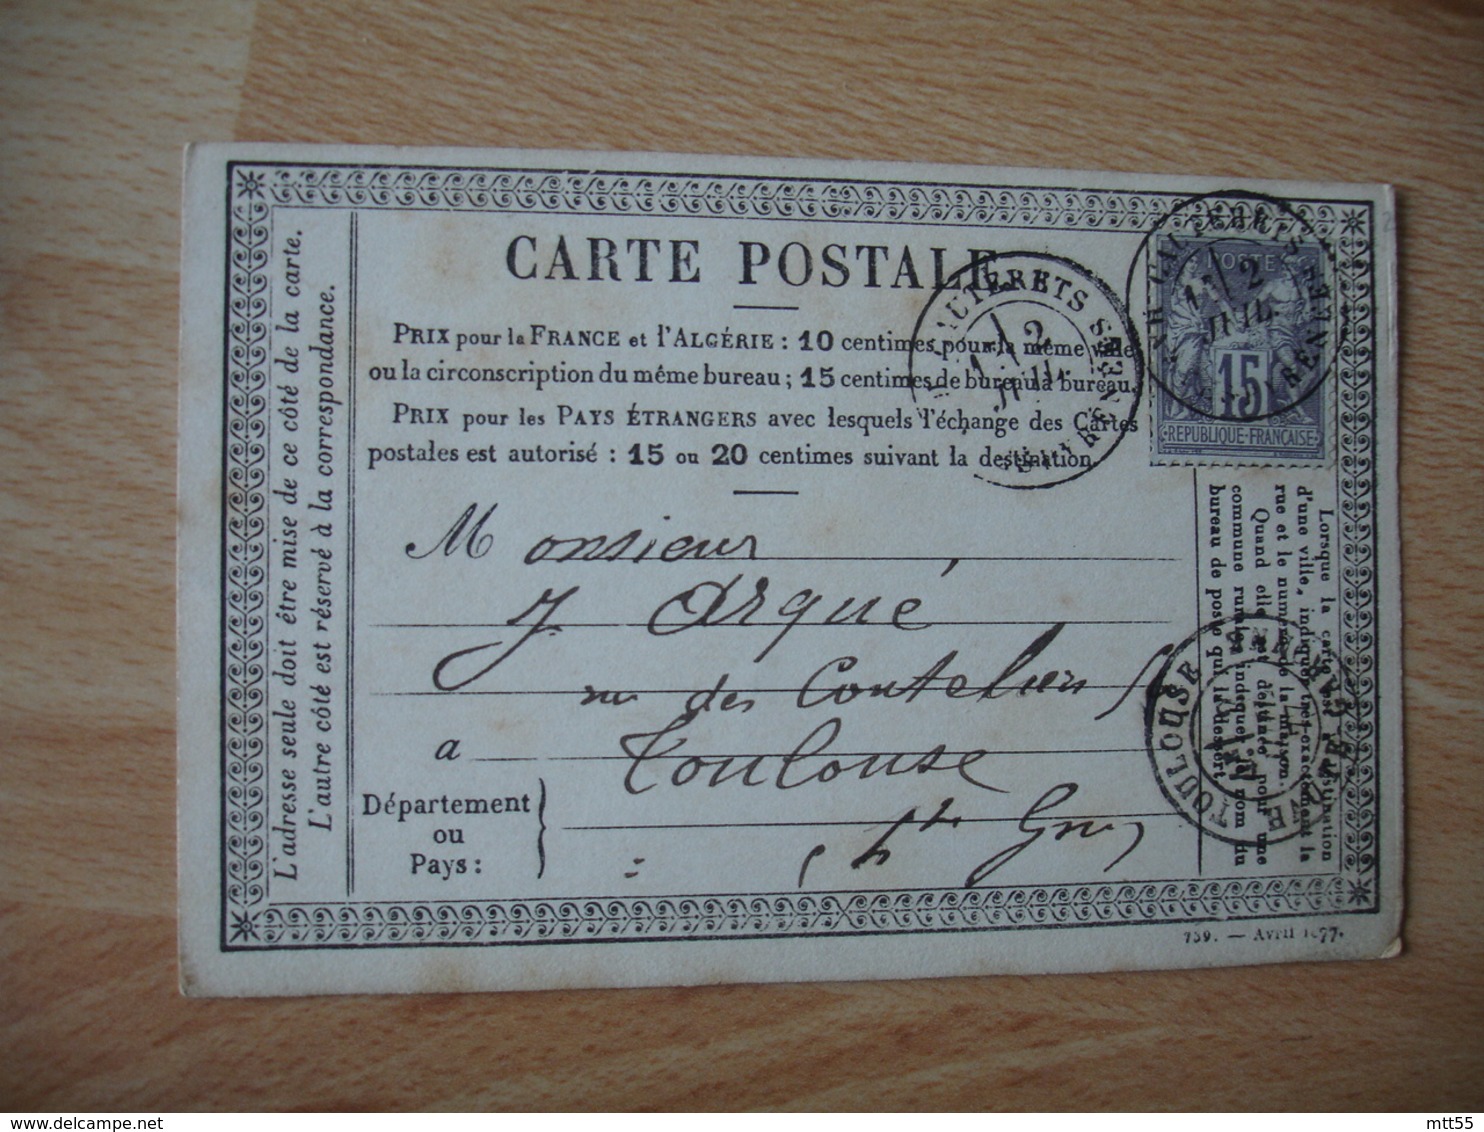 L'adresse seule doit être mise de ce côté de la carte.
L'autre côté est réservé à la correspondance.
CARTE POSTALE
PRIX pour la FRANCE et l'ALGÉRIE : 10 centimes pour la même ville
ou la circonscription du même bureau ; 15 centimes de bureau à bureau.
PRIX pour les PAYS ÉTRANGERS avec lesquels l'échange des Cartes
postales est autorisé : 15 ou 20 centimes suivant la destination.
CAUTERETS
2
JUIL.
POSTE
2
JUIL.
15
REPUBLIQUE-FRANÇAISE
Monsieur
J Arqué
rue des Couteliers
a Toulouse
Département
ou
Pays :
hte Gne
Lorsque la carte est à destination
d'une ville, indiquer très-exactement la
rue et le numéro de la maison.
Quand elle est destinée pour une
commune rurale, indiquer le nom du
bureau de poste qui la dessert.
TOULOUSE
GARONNE
77
739. — Avril 1877.
mtt55